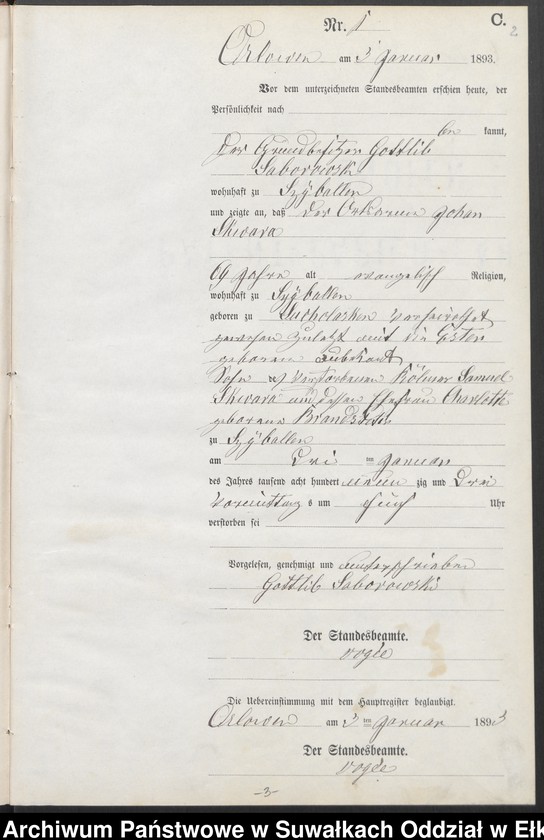 Nr. 1
C.
2
Orlowen am 3 Januar 1893.
Vor dem unterzeichneten Standesbeamten erschien heute, der
Persönlichkeit nach
be kannt,
der Grundbesitzer Gottlib
Saborowski
wohnhaft zu Szÿballen
und zeigte an, daß der Ortsarme Johan
Skwara
69 Jahre alt evangelisch Religion,
wohnhaft zu Szÿballen
geboren zu Sucholasken verheirathet
gewesen zuletzt mit die Ester
geborene
Sohn des verstorbenen Kölmer Samuel
Skwara und dessen Ehefrau Charlotte
geborene
zu Szÿballen
am Drei ten Januar
des Jahres tausend acht hundert neun zig und Drei
Vormittag s um fünf Uhr
verstorben sei
Vorgelesen, genehmigt und unterschrieben
Gottlib Saborowski
Der Standesbeamte.
Vogée
Die Uebereinstimmung mit dem Hauptregister beglaubigt.
Orlowen am 3 ten Januar 1893
Der Standesbeamte.
Vogée
-3-
Archiwum Państwowe w Suwałkach Oddział w Eł